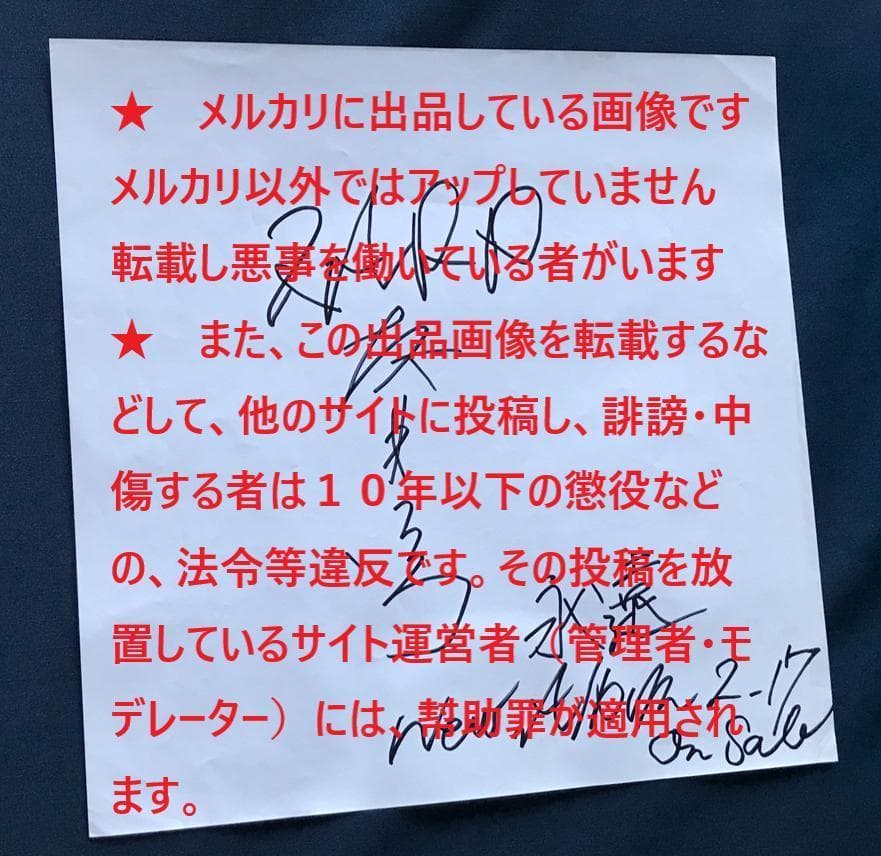 ★ メルカリに出品している画像です
メルカリ以外ではアップしていません
転載し悪事を働いている者がいます
★ また、この出品画像を転載するな
どして、他のサイトに投稿し、誹謗・中
傷する者は１０年以下の懲役など
の、法令等違反です。その投稿を放
置しているサイト運営者（管理者・モ
デレーター）には、幇助罪が適用され
ます。
ZARD
坂井泉水
永遠
New Album 2-17
On Sale